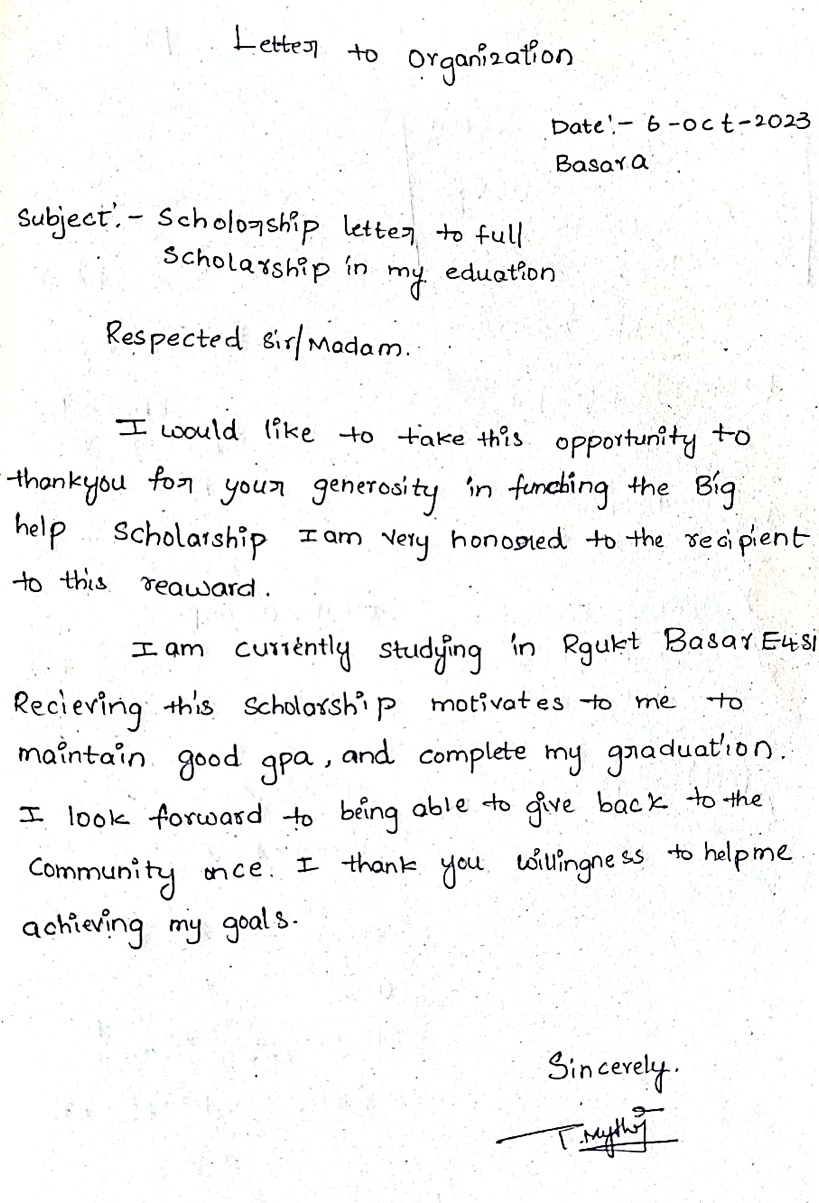 Letter to Organization
Date:- 6-oct-2023
Basara
Subject:- Scholorship letter to full
Scholarship in my eduation
Respected Sir/Madam.
I would like to take this opportunity to
thankyou for your generosity in funding the Big
help Scholarship I am very honored to the recipient
to this reaward.
I am currently studying in Rgukt Basar E4S1
Recieving this Scholarship motivates to me to
maintain good gpa, and complete my graduation.
I look forward to being able to give back to the
Community once. I thank you willingness to help me
achieving my goals.
Sincerely.